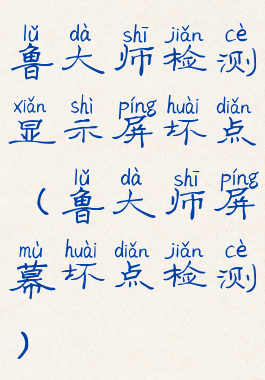 lǔ dà shī jiǎn cè
鲁大师检测
xiǎn shì píng huài diǎn
显示屏坏点
lǔ dà shī píng
（鲁大师屏
mù huài diǎn jiǎn cè
幕坏点检测
）